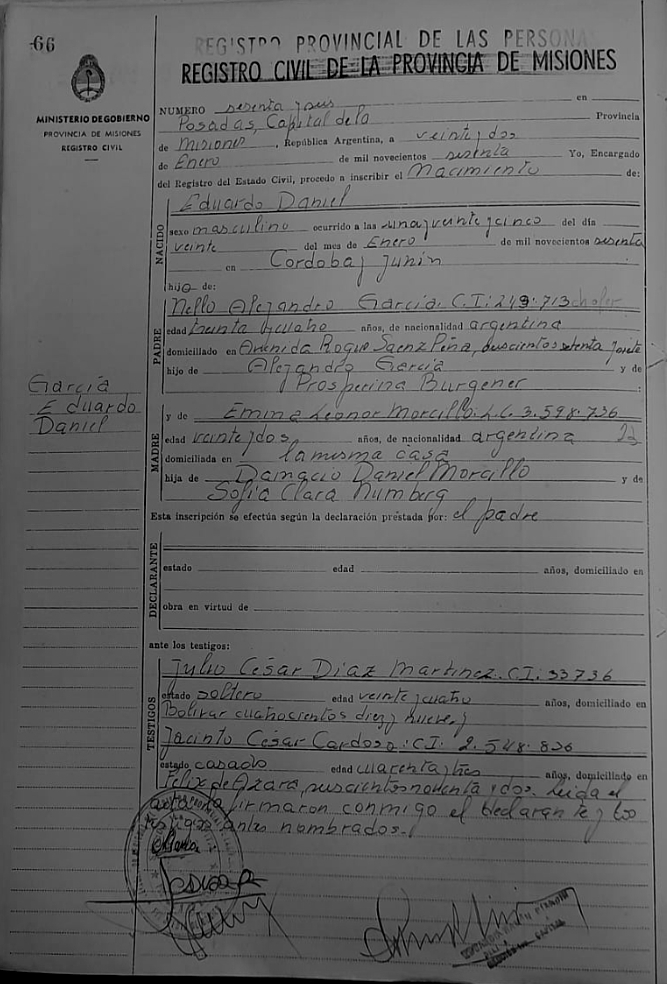 66
REGISTRO PROVINCIAL DE LAS PERSONA
REGISTRO CIVIL DE LA PROVINCIA DE MISIONES
MINISTERIO DE GOBIERNO
PROVINCIA DE MISIONES
REGISTRO CIVIL
García
Eduardo
Daniel
NUMERO sesenta y seis en
Posadas, Capital de la Provincia
de Misiones, República Argentina, a veinte y dos
de Enero de mil novecientos sesenta Yo, Encargado
del Registro del Estado Civil, procedo a inscribir el Nacimiento de:
NACIDO
Eduardo Daniel
sexo masculino ocurrido a las una y veinte y cinco del día
veinte del mes de Enero de mil novecientos sesenta
en Cordoba y Junin
hijo de:
PADRE
Nello Alejandro García. C.I: 249.713 chofer
edad treinta y cuatro años, de nacionalidad argentina
domiciliado en Avenida Roque Saenz Peña, duscientos setenta y siete
hijo de Alejandro García y de
Prosperina Burgener
MADRE
y de Emina Leonor Morcillo. L.C. 3.598.736
edad veinte y dos años, de nacionalidad argentina 22
domiciliada en la misma casa
hija de Damacio Daniel Morcillo y de
Sofía Clara Numberg
Esta inscripción se efectúa según la declaración prestada por: el padre
DECLARANTE
estado edad años, domiciliado en
obra en virtud de
ante los testigos:
TESTIGOS
Julio César Díaz Martinez. C.I: 33736
estado soltero edad veinte y cuatro años, domiciliado en
Bolivar cuatrocientos diez y nueve y
Jacinto César Cardoso: CI: 2.548.836
estado casado edad cuarenta y tres años, domiciliado en
Felix de Azara, duscientos noventa y dos. Leida el
acta la firmaron conmigo el declarante y los
testigos antes nombrados.